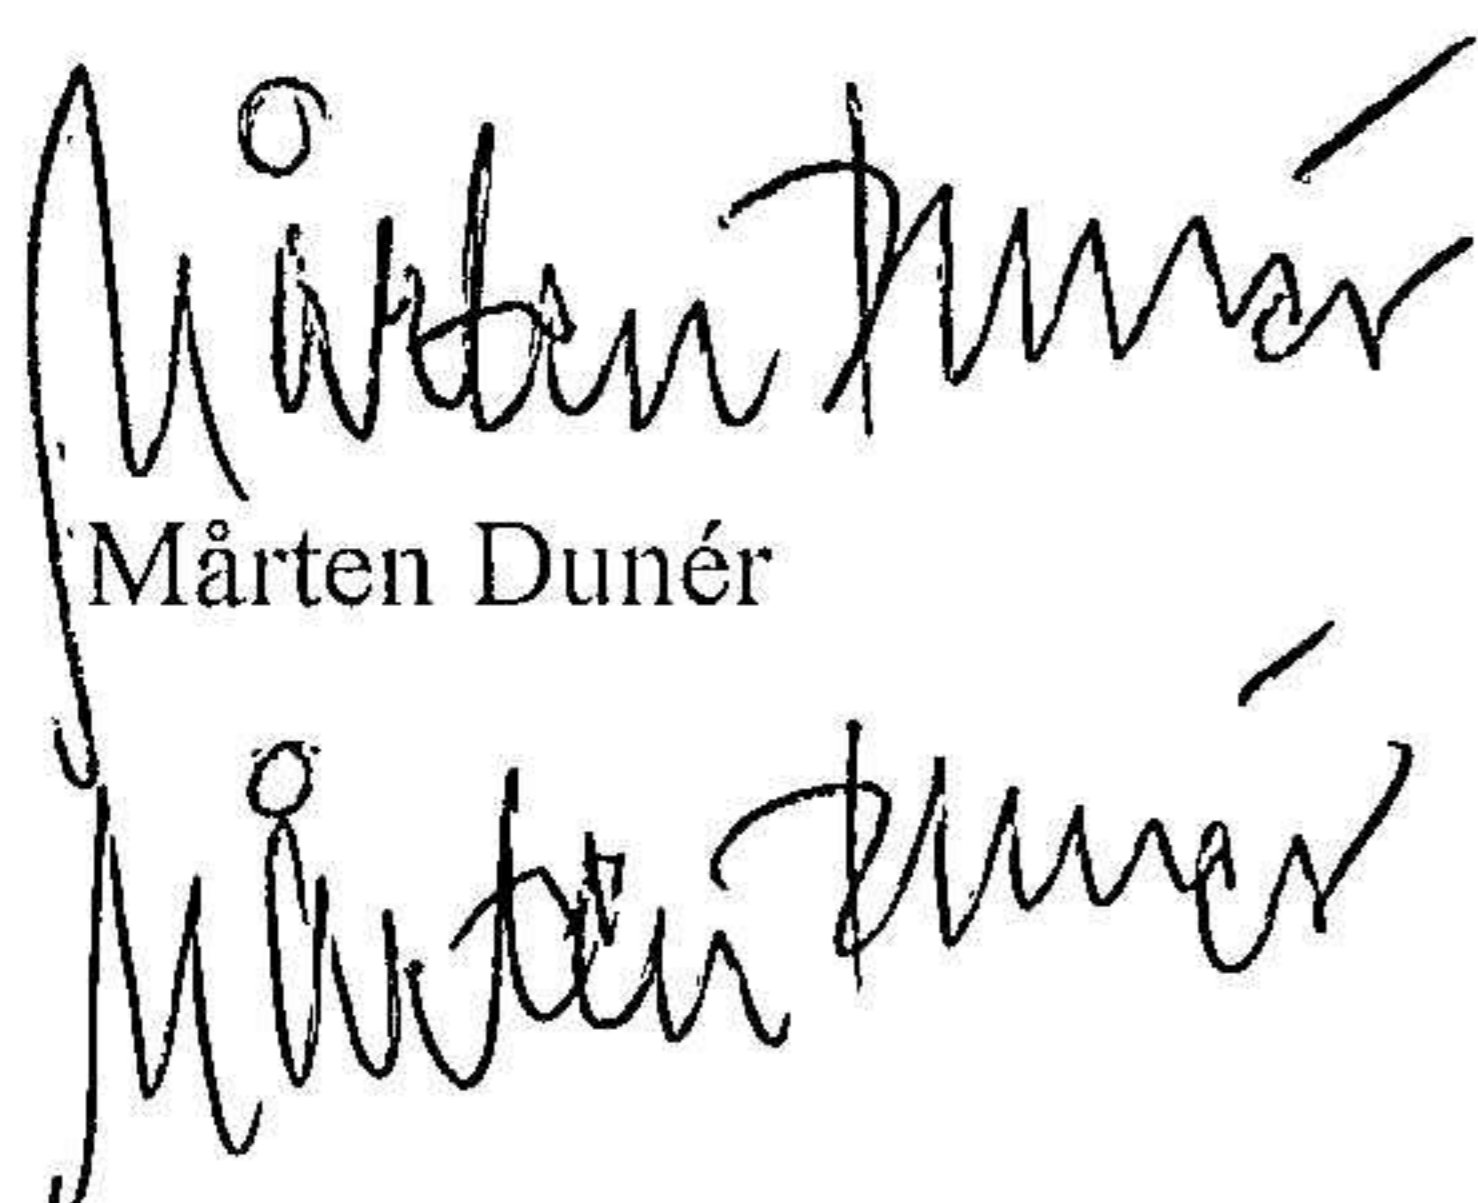 Mårten Dunér
Mårten Dunér
Mårten Dunér